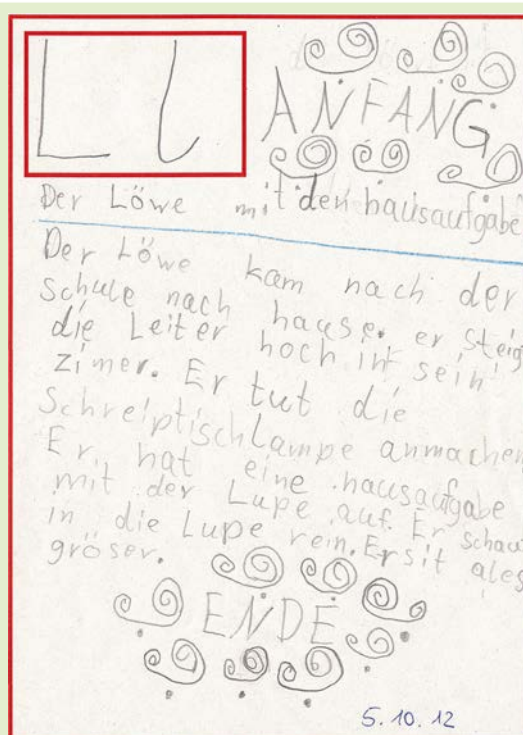 L l
ANFANG
Der Löwe mit den hausaufgabe
Der Löwe kam nach der
Schule nach hause. er steig
die Leiter hoch in sein
zimer. Er tut die
Schreiptischlampe anmachen
Er hat eine hausaufgabe
mit der Lupe auf. Er schau
in die Lupe rein. Er sit ales
gröser.
ENDE
5.10.12